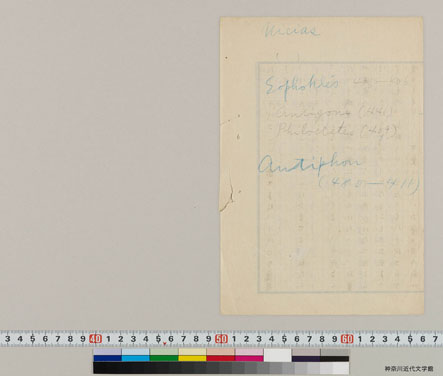 Nicias
Sophokles
Antigone (441)
Philoctetes (409)
Antiphon
(480—411)
3 4 5 6 7 8 9 40 1 2 3 4 5 6 7 8 9 50 1 2 3 4 5 6 7 8 9 60 1 2 3 4 5 6 7
神奈川近代文学館